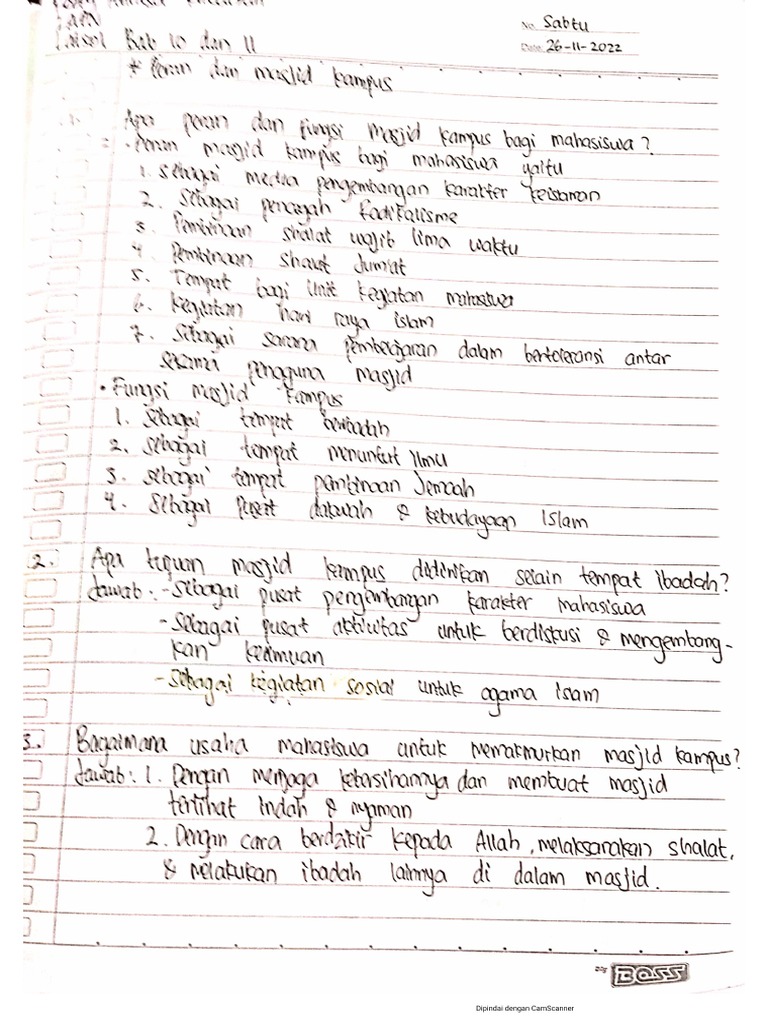 No. Sabtu
Date. 26-11-2022
Bab 10 dan 11
* Peran dan masjid kampus
1. Apa peran dan fungsi masjid kampus bagi mahasiswa?
• Peran masjid kampus bagi mahasiswa yaitu
1. Sebagai media pengembangan karakter keislaman
2. Sebagai pencegah radikalisme
3. Pembinaan shalat wajib lima waktu
4. Pembinaan shalat Jum'at
5. Tempat bagi Unit kegiatan mahasiswa
6. Kegiatan hari raya islam
7. Sebagai sarana pembelajaran dalam bertoleransi antar
sesama pengguna masjid
• Fungsi masjid kampus
1. Sebagai tempat beribadah
2. Sebagai tempat menuntut Ilmu
3. Sebagai tempat pembinaan Jemaah
4. Sebagai pusat dakwah & kebudayaan Islam
2. Apa tujuan masjid kampus didirikan selain tempat ibadah?
Jawab : - Sebagai pusat pengembangan karakter mahasiswa
- Sebagai pusat aktivitas untuk berdiskusi & mengembang-
kan keilmuan
- Sebagai kegiatan sosial untuk agama Islam
3. Bagaimana usaha mahasiswa untuk memakmurkan masjid kampus?
Jawab : 1. Dengan menjaga kebersihannya dan membuat masjid
terlihat indah & nyaman
2. Dengan cara berdzikir kepada Allah, melaksanakan shalat,
& melakukan ibadah lainnya di dalam masjid.
BOSS
Dipindai dengan CamScanner